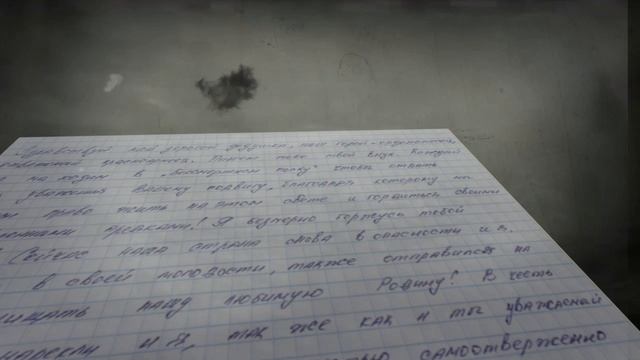 Здравствуй мой дорогой дедушка, наш герой-
Пишет тебе твой внук который
на ходим в "Бессмертном полку" чтобы отдать
уважения Вашему подвигу, благодаря которому мы
право жить на этом свете и гордиться своими
предками! Я безмерно горжусь тобой
Сейчас наша страна снова в опасности и я,
в своей молодости, также отправился на
нашу любимую Родину! В честь
нарекли и я, так же как и ты уважаемый
самоотверженно